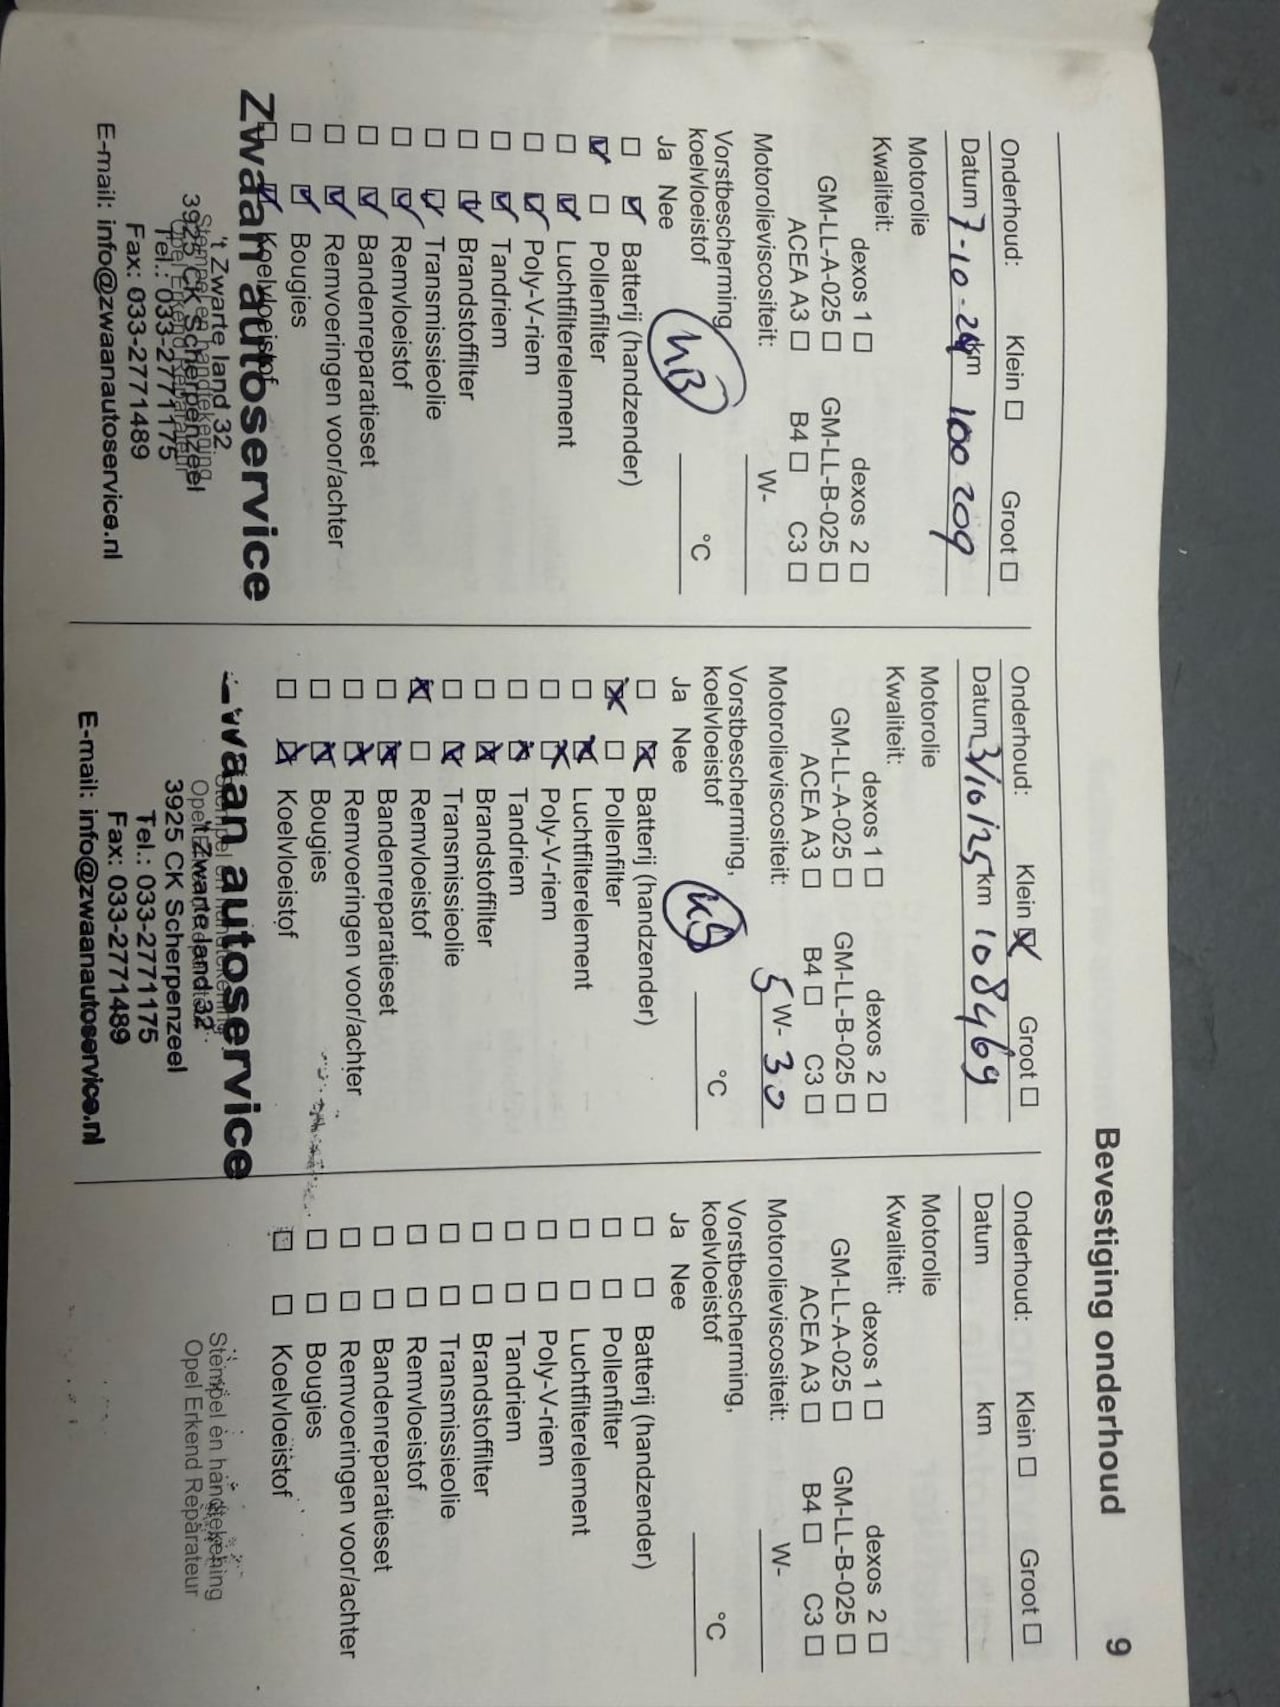 Bevestiging onderhoud 9
Onderhoud: Klein ☐ Groot ☐
Datum 7-10-24 km 100 209
Motorolie
Kwaliteit:
dexos 1 ☐ dexos 2 ☐
GM-LL-A-025 ☐ GM-LL-B-025 ☐
ACEA A3 ☐ B4 ☐ C3 ☐
Motorolieviscositeit: W-
Vorstbescherming
koelvloeistof °C
Ja Nee
☐ ☑ Batterij (handzender)
☑ ☐ Pollenfilter
☐ ☑ Luchtfilterelement
☐ ☑ Poly-V-riem
☐ ☑ Tandriem
☐ ☑ Brandstoffilter
☐ ☑ Transmissieolie
☐ ☑ Remvloeistof
☐ ☑ Bandenreparatieset
☐ ☑ Remvoeringen voor/achter
☐ ☑ Bougies
☐ ☑ Koelvloeistof
Zwaan autoservice
't Zwarte land 32
Stempel en handtekening
3925 CK Scherpenzeel
Opel Erkend Reparateur
Tel.: 033-2771175
Fax: 033-2771489
E-mail: info@zwaanautoservice.nl
Onderhoud: Klein ☒ Groot ☐
Datum 3/10/25 km 108469
Motorolie
Kwaliteit:
dexos 1 ☐ dexos 2 ☐
GM-LL-A-025 ☐ GM-LL-B-025 ☐
ACEA A3 ☐ B4 ☐ C3 ☐
Motorolieviscositeit: 5 W- 30
Vorstbescherming,
koelvloeistof °C
Ja Nee
☐ ☒ Batterij (handzender)
☒ ☐ Pollenfilter
☐ ☒ Luchtfilterelement
☐ ☒ Poly-V-riem
☐ ☒ Tandriem
☐ ☒ Brandstoffilter
☐ ☒ Transmissieolie
☒ ☐ Remvloeistof
☐ ☒ Bandenreparatieset
☐ ☒ Remvoeringen voor/achter
☐ ☒ Bougies
☐ ☒ Koelvloeistof
waan autoservice
't Zwarte land 32
3925 CK Scherpenzeel
Tel.: 033-2771175
Fax: 033-2771489
E-mail: info@zwaanautoservice.nl
Onderhoud: Klein ☐ Groot ☐
Datum km
Motorolie
Kwaliteit:
dexos 1 ☐ dexos 2 ☐
GM-LL-A-025 ☐ GM-LL-B-025 ☐
ACEA A3 ☐ B4 ☐ C3 ☐
Motorolieviscositeit: W-
Vorstbescherming,
koelvloeistof °C
Ja Nee
☐ ☐ Batterij (handzender)
☐ ☐ Pollenfilter
☐ ☐ Luchtfilterelement
☐ ☐ Poly-V-riem
☐ ☐ Tandriem
☐ ☐ Brandstoffilter
☐ ☐ Transmissieolie
☐ ☐ Remvloeistof
☐ ☐ Bandenreparatieset
☐ ☐ Remvoeringen voor/achter
☐ ☐ Bougies
☐ ☐ Koelvloeistof
Stempel en handtekening
Opel Erkend Reparateur